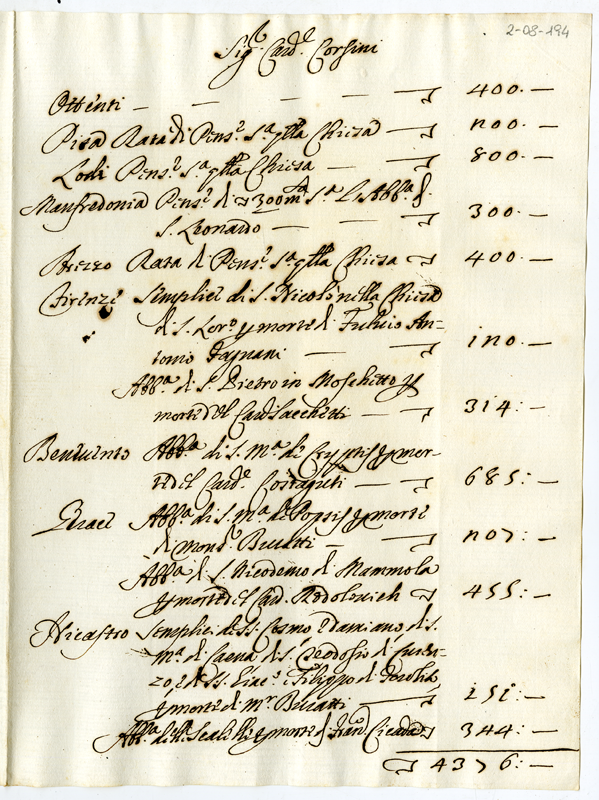 2-08-194
Sig.r Card.l Corsini
Ottenti — — — — — 400:—
Pisa Rata di Pens.e s.a q̃lla Chiesa — 200:—
Lodi Pens.e s.a q̃lla Chiesa — 800:—
Manfredonia Pens.e di 300 m.ta s.a l'Abb.a di
S. Leonardo — 300:—
Arezzo Rata di Pens.e s.a q̃lla Chiesa 400:—
Firenze Semplici di S. Nicolò nella Chiesa
di S. Lor.o p morte di Fulvio An-
tonio — 120:—
Abb.a di S. Pietro in Moschetto p
morte del Card Sacchetti — 314:—
Benevento Abb.a di S. M.a de Cryptis p mor-
te del Card. Costaguti — 685:—
Abb.a di S. M.a de Popsis p morte
di Mons.r Buratti — 207:—
Abb.a di S. Nicodemo di Mammola
p morte del Card. Rodolovich 455:—
Nicastro Semplici de SS. Cosmo e Damiano, di S.
M.a di di S. Teodosio di
zo, e de SS. Giac.o e Filippo di
p morte di M.r Buratti — 151:—
Abb.a di p morte di Fran.o Cicada 344:—
4376:—